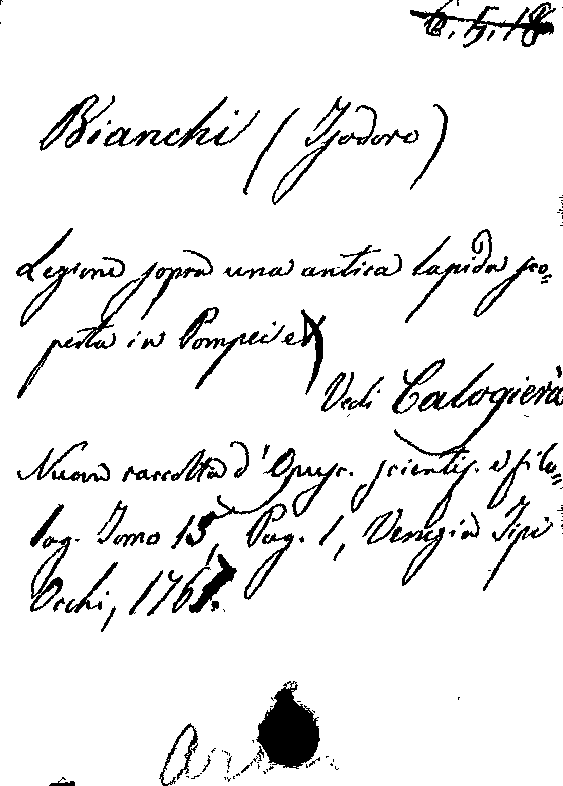 6.5.18
Bianchi (Isodoro)
Lezione sopra una antica lapida sco=
perta in Pompei
Vedi Calogierà
Nuova raccolta d'Opusc. scientif. e filo=
log. Tomo 15, Pag. 1, Venezia Tipi
Occhi, 1767.